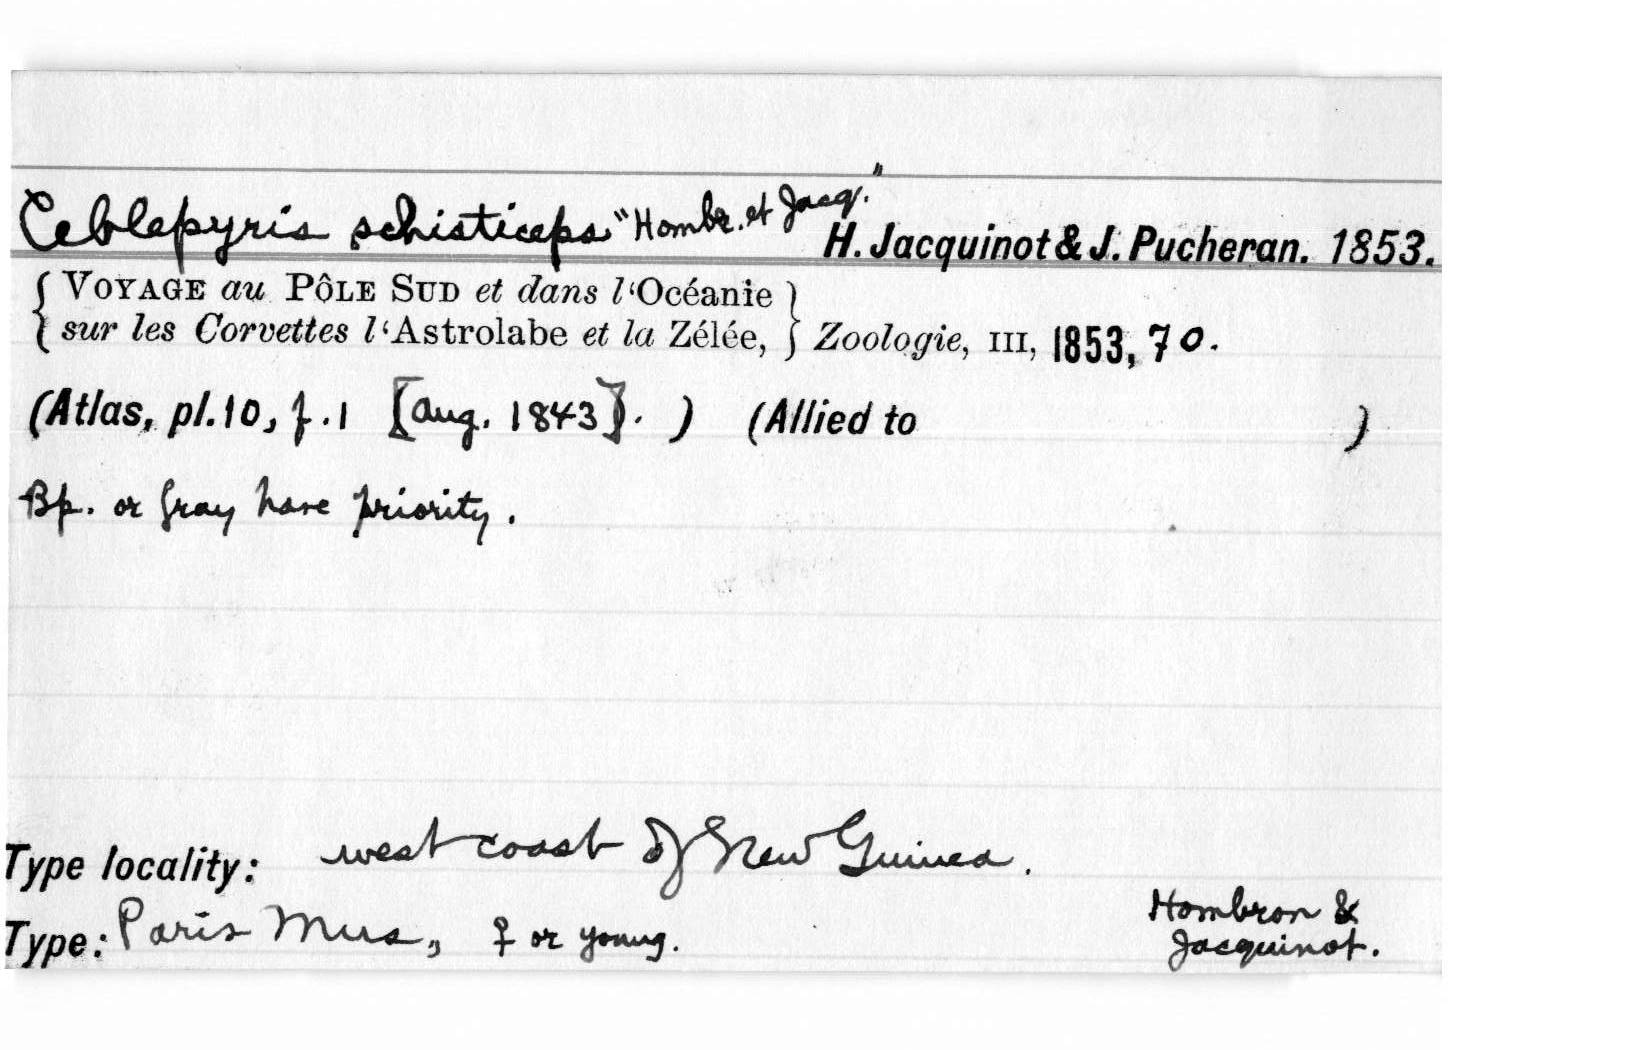 Ceblepyris schisticeps "Hombr. et Jacq." H. Jacquinot & J. Pucheran. 1853.
{ VOYAGE au PÔLE SUD et dans l'Océanie }
{ sur les Corvettes l'Astrolabe et la Zélée, } Zoologie, III, 1853, 70.
(Atlas, pl. 10, f. 1 [Aug. 1843]. ) (Allied to )
Bp. or Gray have priority.
Type locality: west coast of New Guinea.
Type: Paris Mus., ♀ or young. Hombron & Jacquinot.